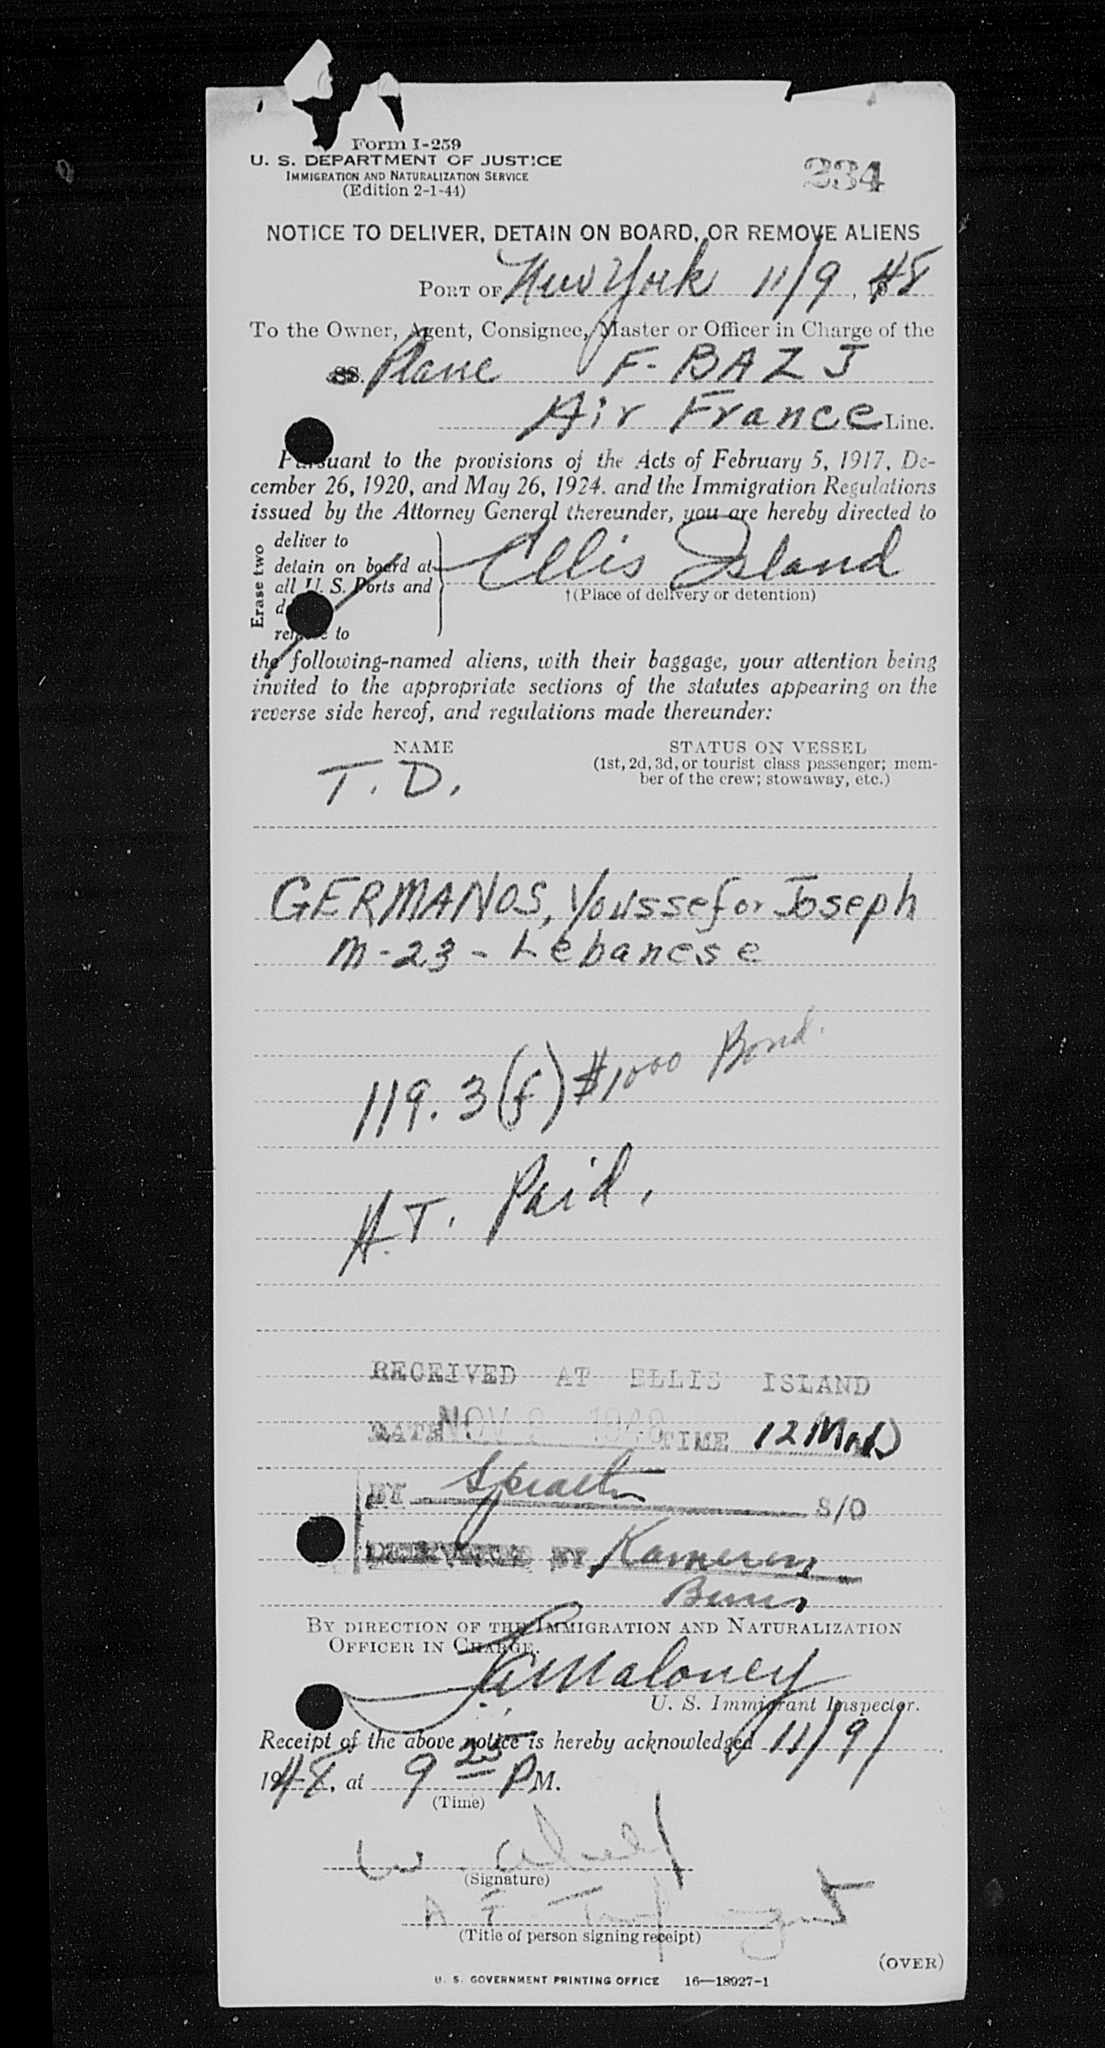 Form I-259
U. S. DEPARTMENT OF JUSTICE
IMMIGRATION AND NATURALIZATION SERVICE
(Edition 2-1-44)
234
NOTICE TO DELIVER, DETAIN ON BOARD, OR REMOVE ALIENS
PORT OF New York 11/9, 48
To the Owner, Agent, Consignee, Master or Officer in Charge of the
SS. Plane F-BAZJ
Air France Line.
Pursuant to the provisions of the Acts of February 5, 1917, De-
cember 26, 1920, and May 26, 1924, and the Immigration Regulations
issued by the Attorney General thereunder, you are hereby directed to
Erase two
deliver to
detain on board at
all U. S. Ports and
to
Ellis Island
†(Place of delivery or detention)
the following-named aliens, with their baggage, your attention being
invited to the appropriate sections of the statutes appearing on the
reverse side hereof, and regulations made thereunder:
NAME
STATUS ON VESSEL
(1st, 2d, 3d, or tourist class passenger; mem-
ber of the crew; stowaway, etc.)
T. D.
GERMANOS, Youssef or Joseph
M-23-Lebanese
119.3(f) $1000 Bond.
H.T. Paid.
RECEIVED AT ELLIS ISLAND
DATE NOV 1948 TIME 12 Mid
BY S/O
BY
BY DIRECTION OF THE IMMIGRATION AND NATURALIZATION
OFFICER IN CHARGE.
Maloney
U. S. Immigrant Inspector.
Receipt of the above notice is hereby acknowledged 11/9/
1948, at 9 25 P M.
(Time)
W.
(Signature)
A F
(Title of person signing receipt)
(OVER)
U. S. GOVERNMENT PRINTING OFFICE 16—18927-1